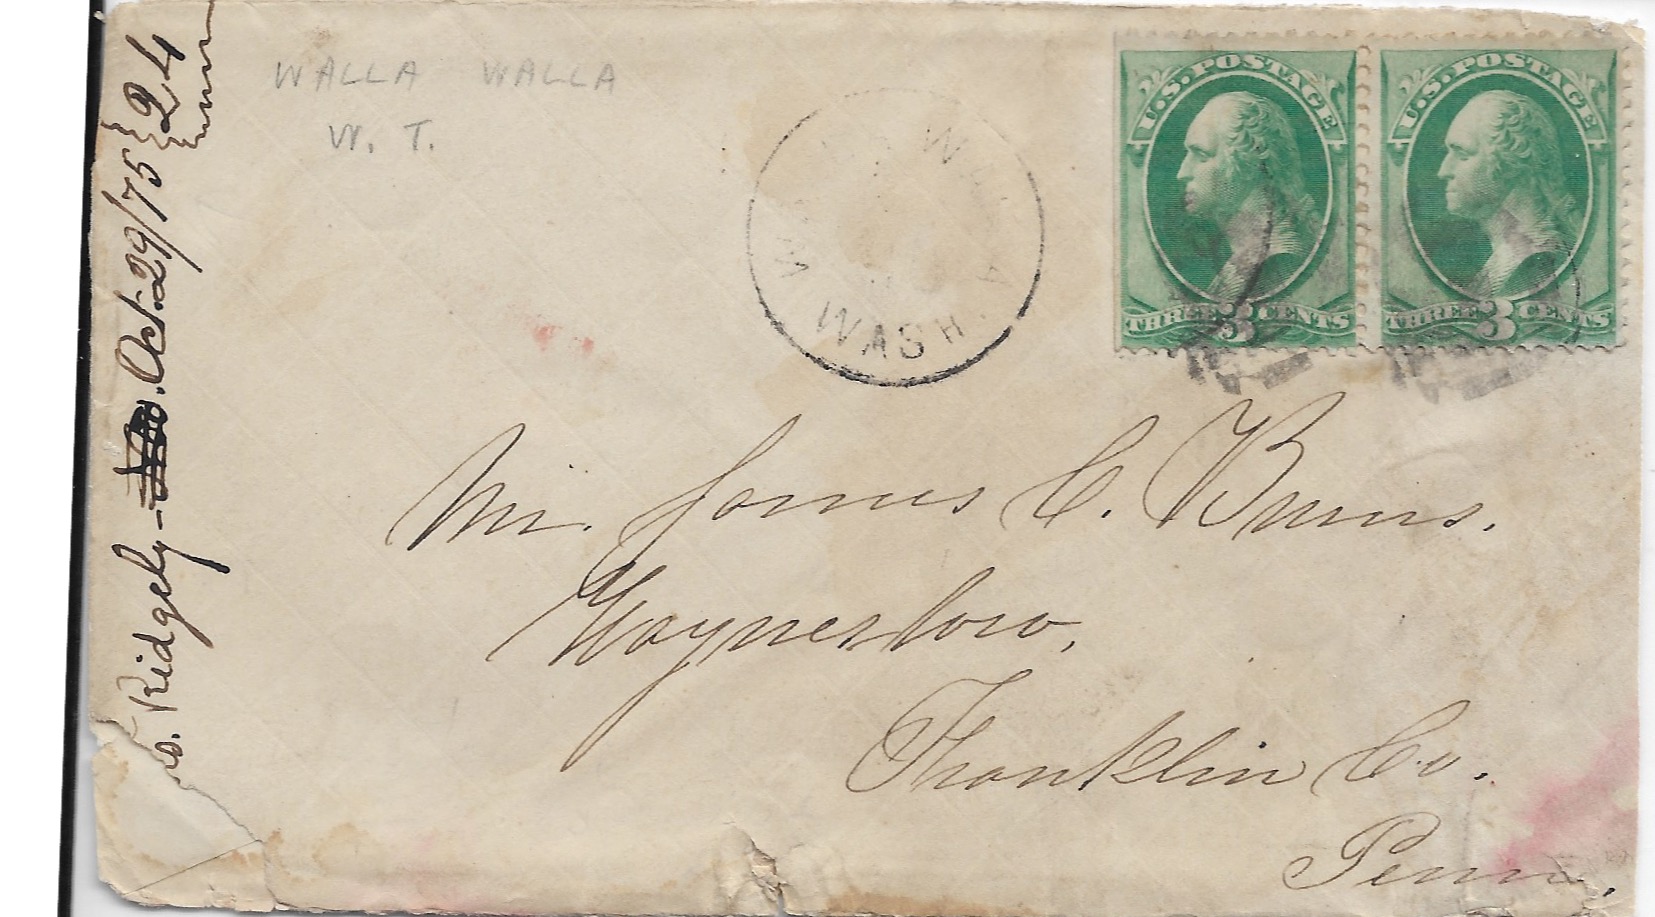 WALLA WALLA
W. T.
WALLA WALLA
WASH.
U.S. POSTAGE
THREE 3 CENTS
U.S. POSTAGE
THREE 3 CENTS
Mr. James C. Burns.
Waynesboro,
Franklin Co.
Penn.
Ridgely - Oct. 29/75 } 24